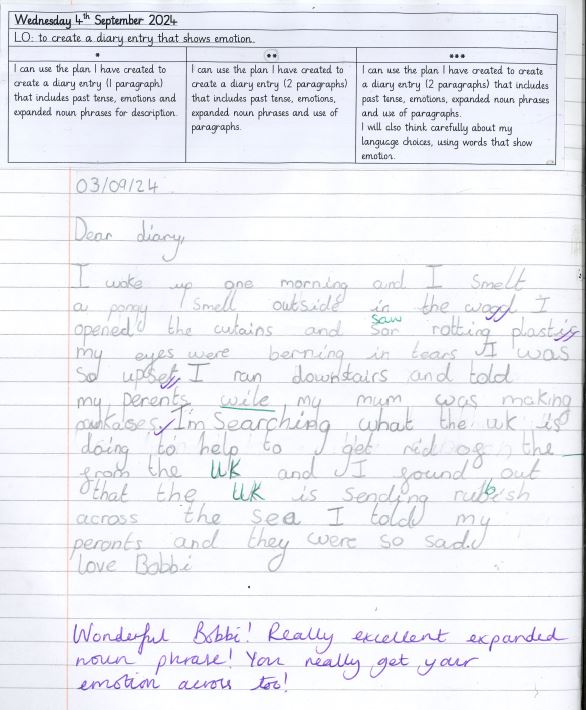 Wednesday 4th September 2024
LO: to create a diary entry that shows emotion.
*
I can use the plan I have created to
create a diary entry (1 paragraph)
that includes past tense, emotions and
expanded noun phrases for description.
**
I can use the plan I have created to
create a diary entry (2 paragraphs)
that includes past tense, emotions,
expanded noun phrases and use of
paragraphs.
***
I can use the plan I have created to create
a diary entry (2 paragraphs) that includes
past tense, emotions, expanded noun phrases
and use of paragraphs.
I will also think carefully about my
language choices, using words that show
emotion.
03/09/24
Dear diary,
I woke up one morning and I smelt
a pongy smell outside in the I
saw
opened the cutains and sor rotting plastic
my eyes were berning in tears I was
so upset, I ran downstairs and told
my perents wile my mum was making
pankakes, I'm Searching what the uk is
doing to help to get rid of the
from the UK and I found out
that the UK is sending rubbish
across the sea I told my
peronts and they were so sad.
love Bobbi
Wonderful Bobbi! Really excellent expanded
noun phrase! You really get your
emotion across too!